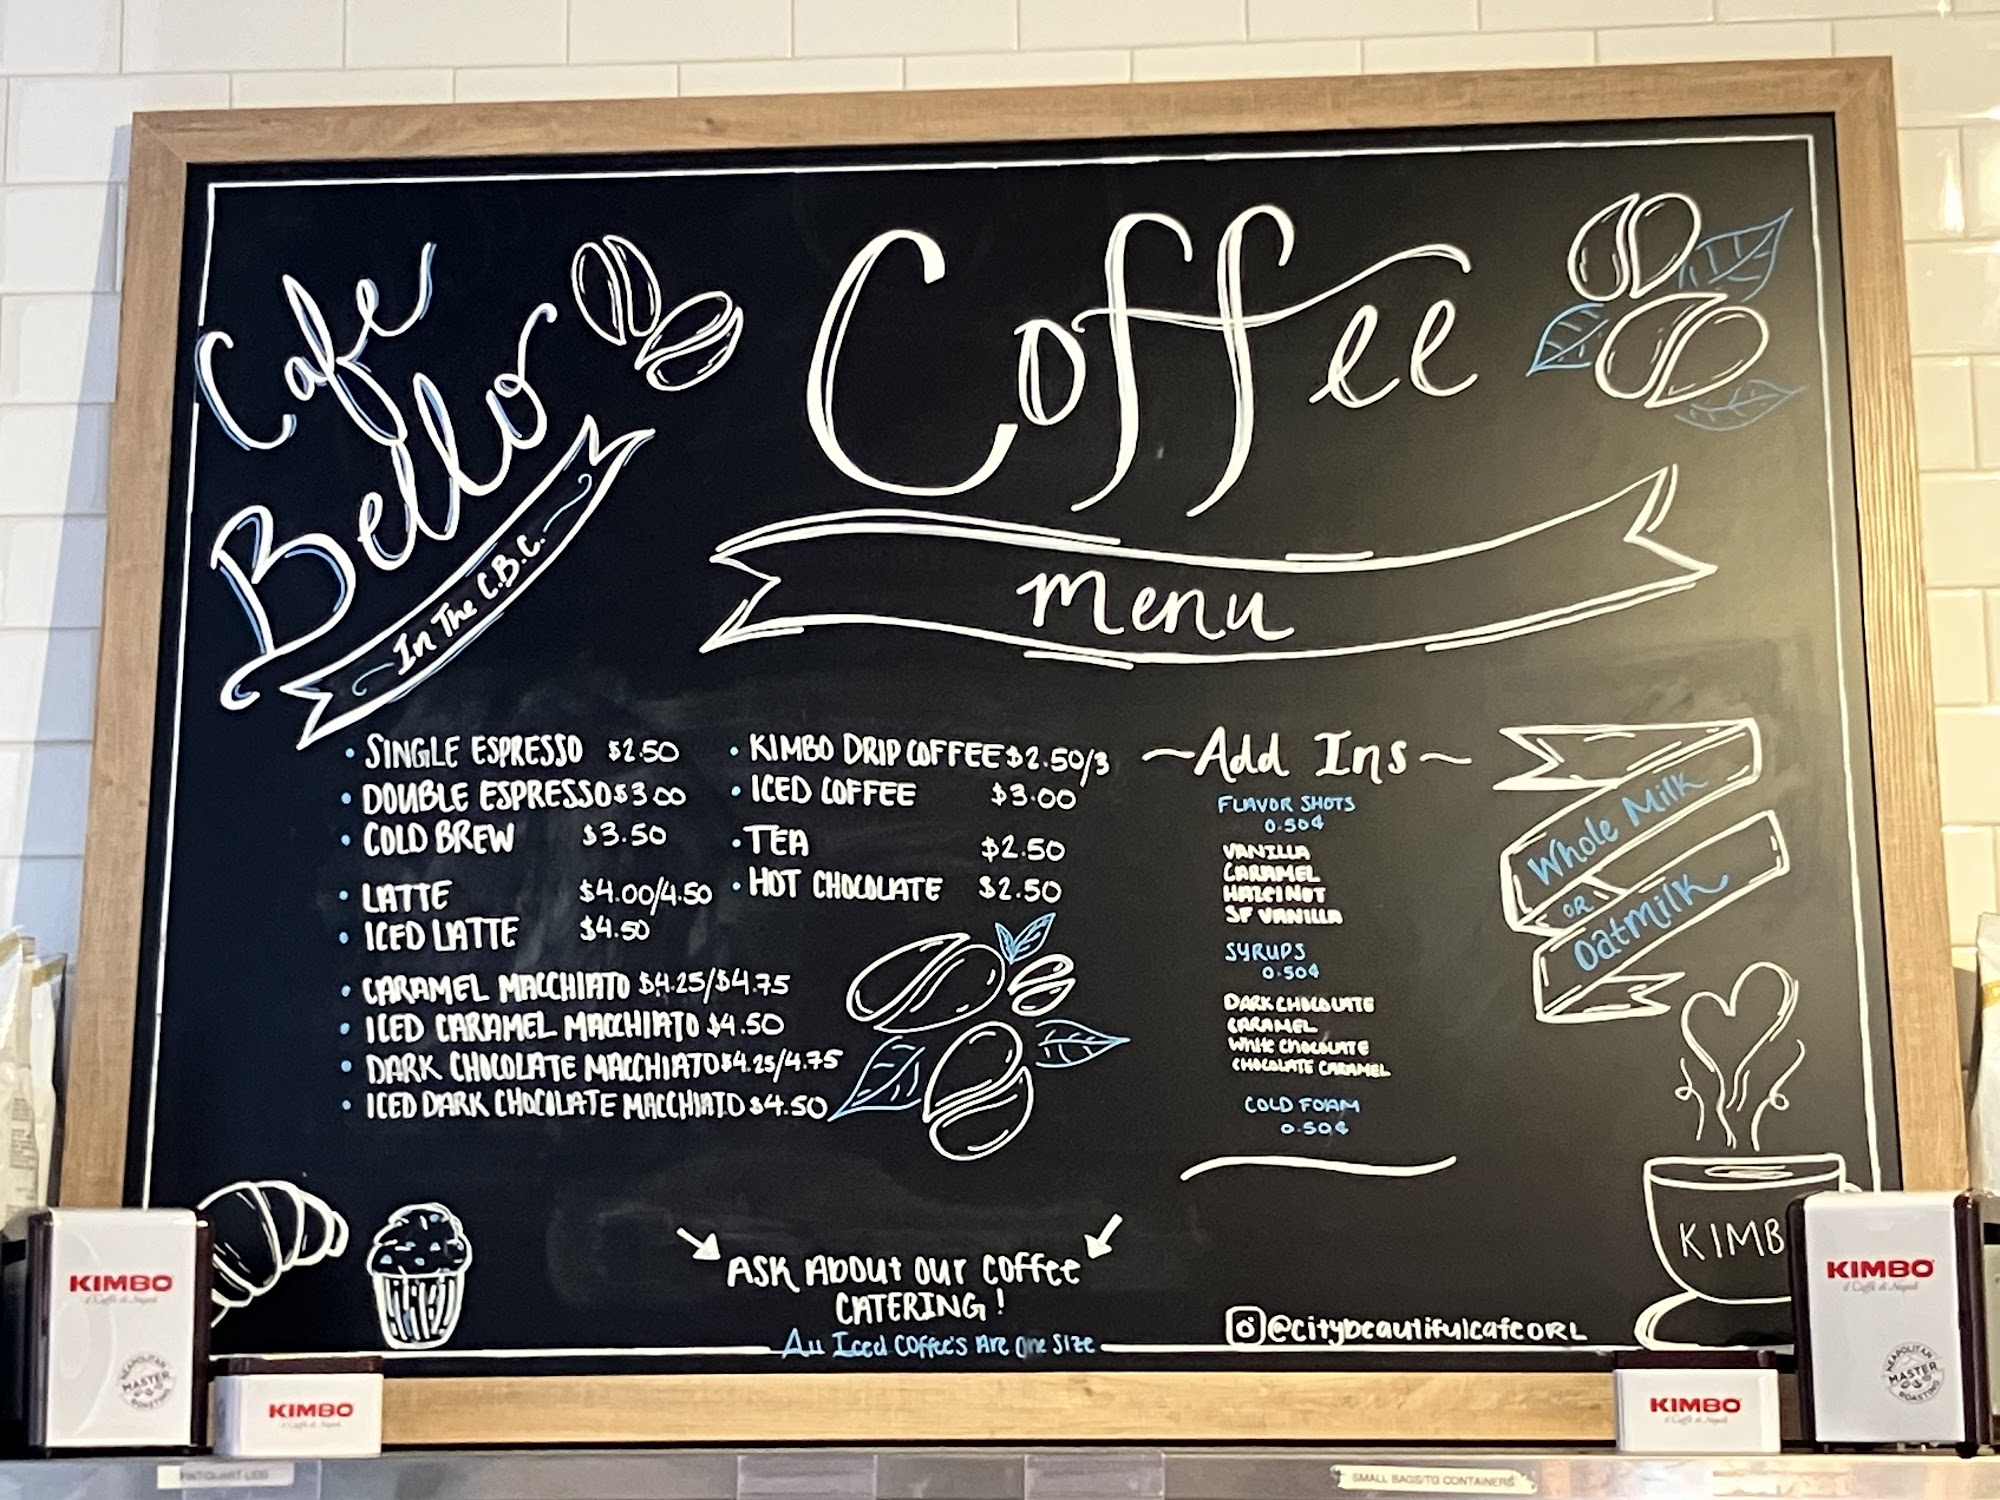 Cafe
Bello
In The C.B.C.
Coffee
Menu
• SINGLE ESPRESSO $2.50
• DOUBLE ESPRESSO $3.00
• COLD BREW $3.50
• LATTE $4.00/4.50
• ICED LATTE $4.50
• CARAMEL MACCHIATO $4.25/$4.75
• ICED CARAMEL MACCHIATO $4.50
• DARK CHOCOLATE MACCHIATO $4.25/4.75
• ICED DARK CHOCOLATE MACCHIATO $4.50
• KIMBO DRIP COFFEE $2.50/3
• ICED COFFEE $3.00
• TEA $2.50
• HOT CHOCOLATE $2.50
~Add Ins~
FLAVOR SHOTS
0.50¢
VANILLA
CARAMEL
HAZELNUT
SF VANILLA
SYRUPS
0.50¢
DARK CHOCOLATE
CARAMEL
White CHOCOLATE
CHOCOLATE CARAMEL
COLD FOAM
0.50¢
Whole Milk
OR
Oatmilk
KIMB
ASK ABOUT OUR COFFEE
CATERING!
All Iced Coffee's Are One Size
@citybeautifulcafeORL
KIMBO
NEAPOLITAN
MASTER
ROASTING
KIMBO
KIMBO
KIMBO
NEAPOLITAN
MASTER
ROASTING
SMALL BAGS/TG CONTAINERS